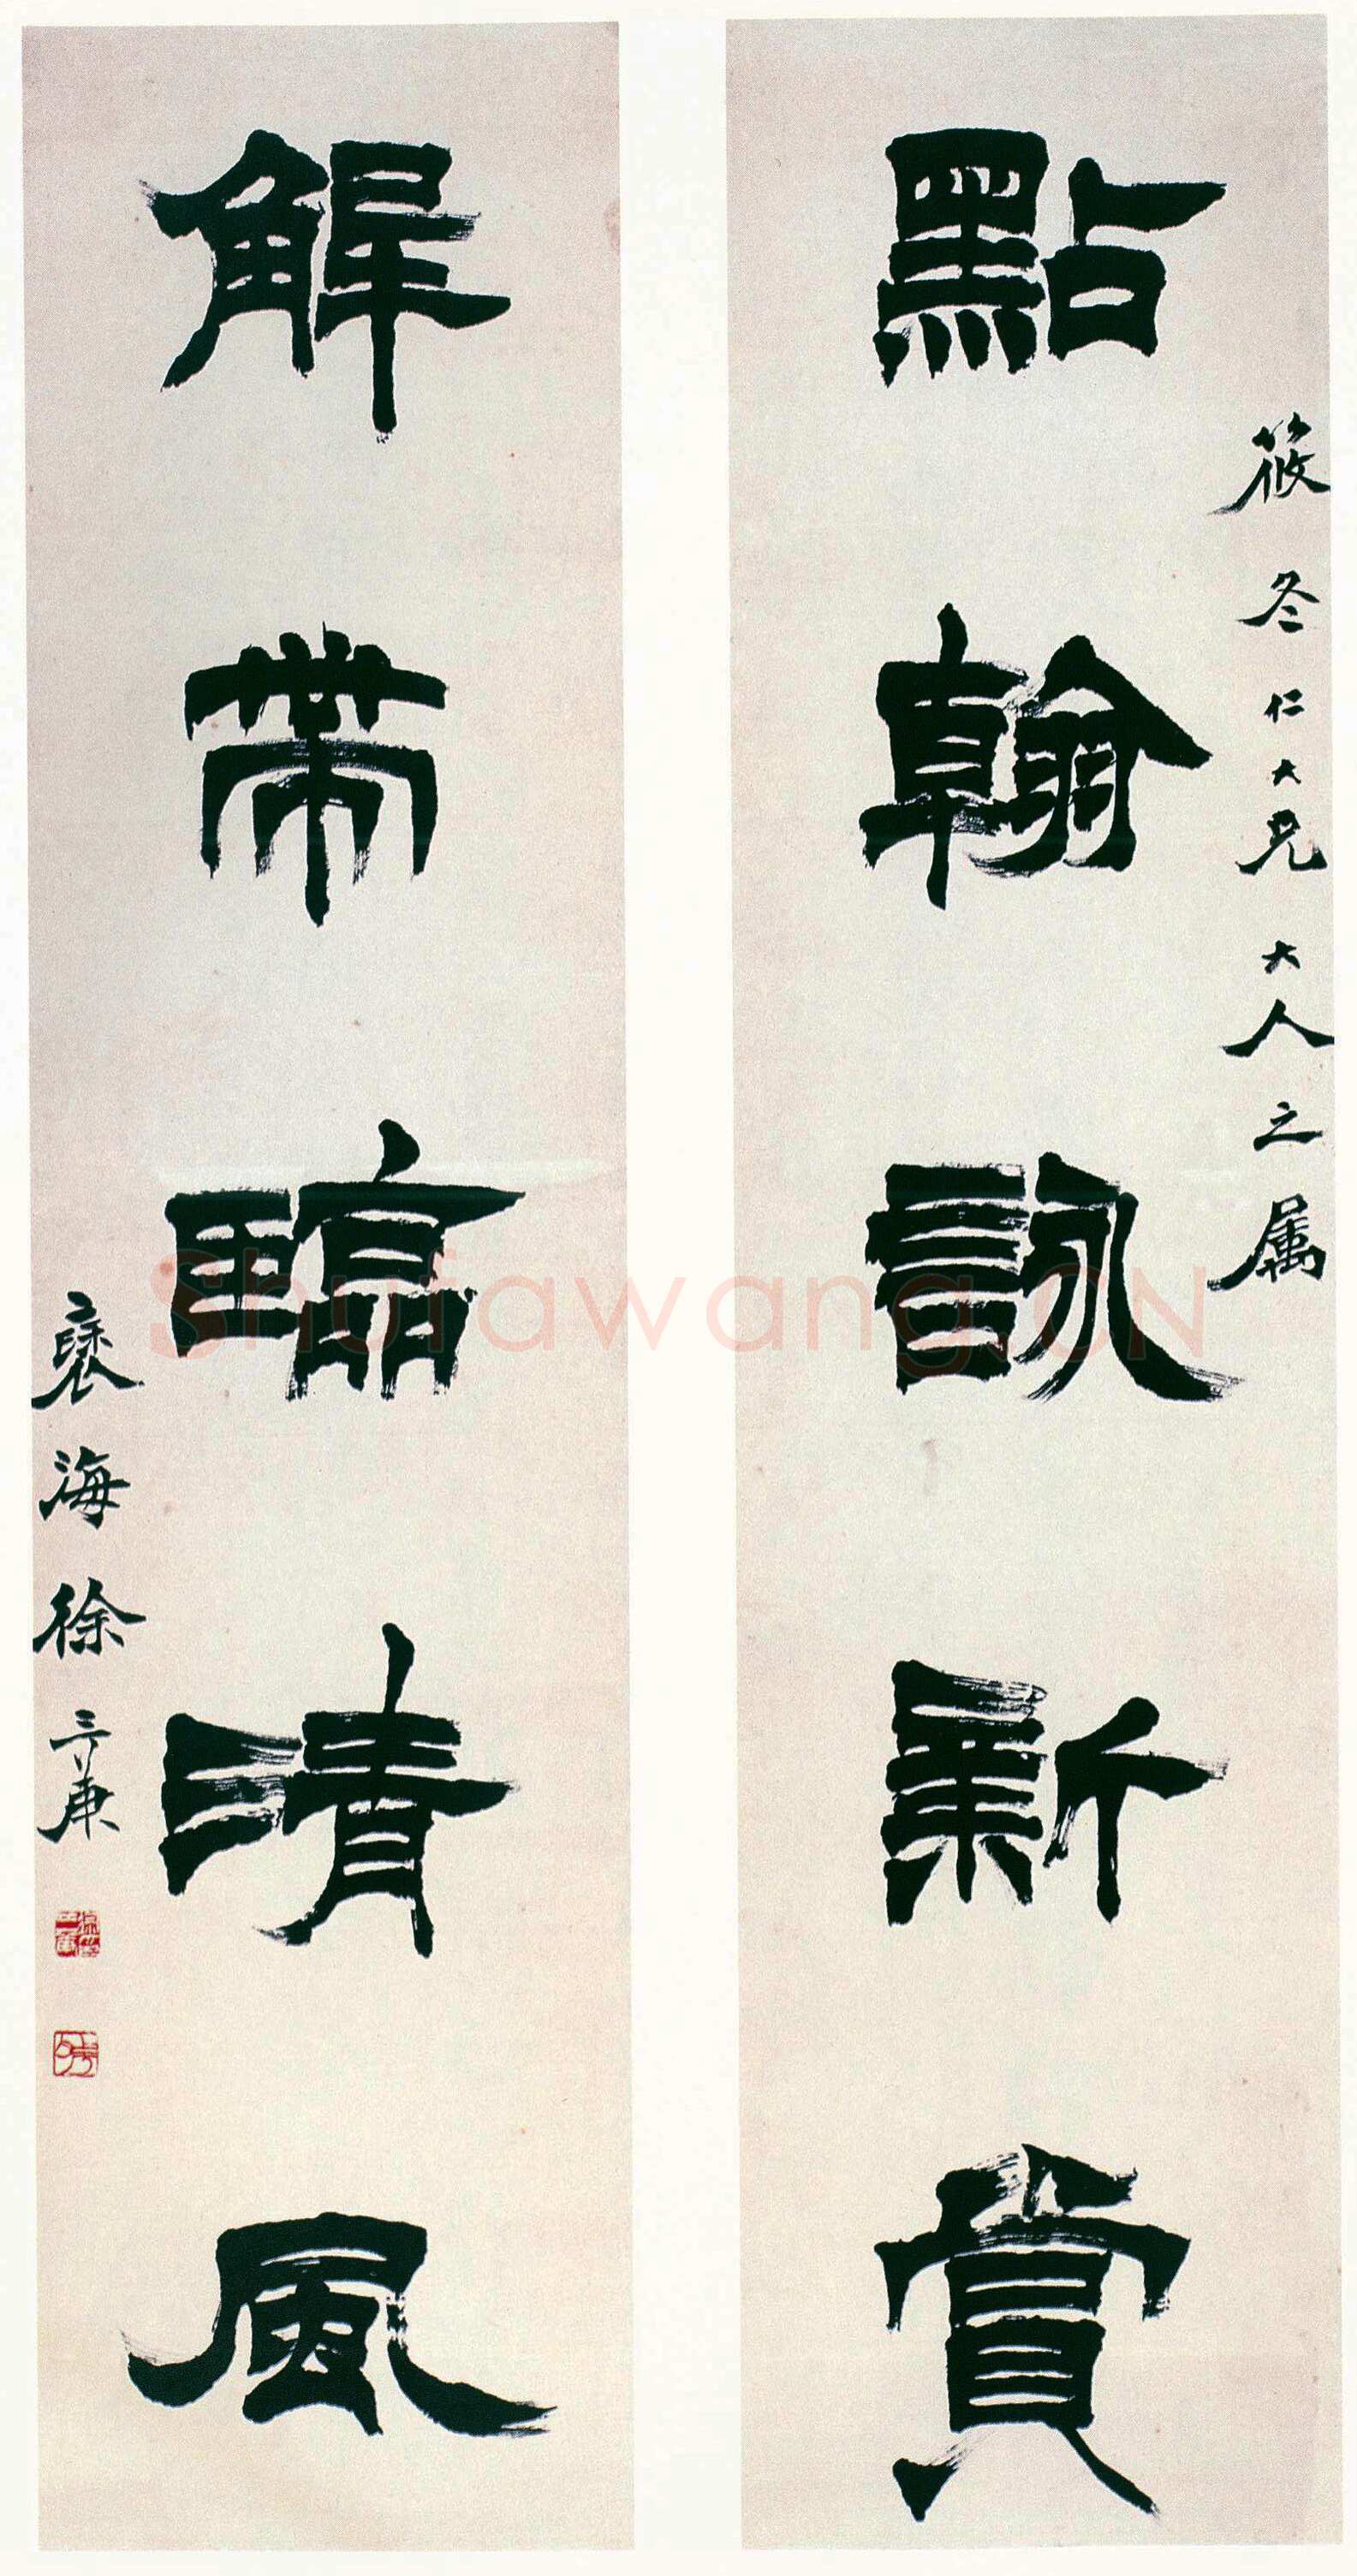 點翰詠新賞
筱冬仁大兄大人之属
解帶臨晴風
褎海徐三庚
Shufawang.CN